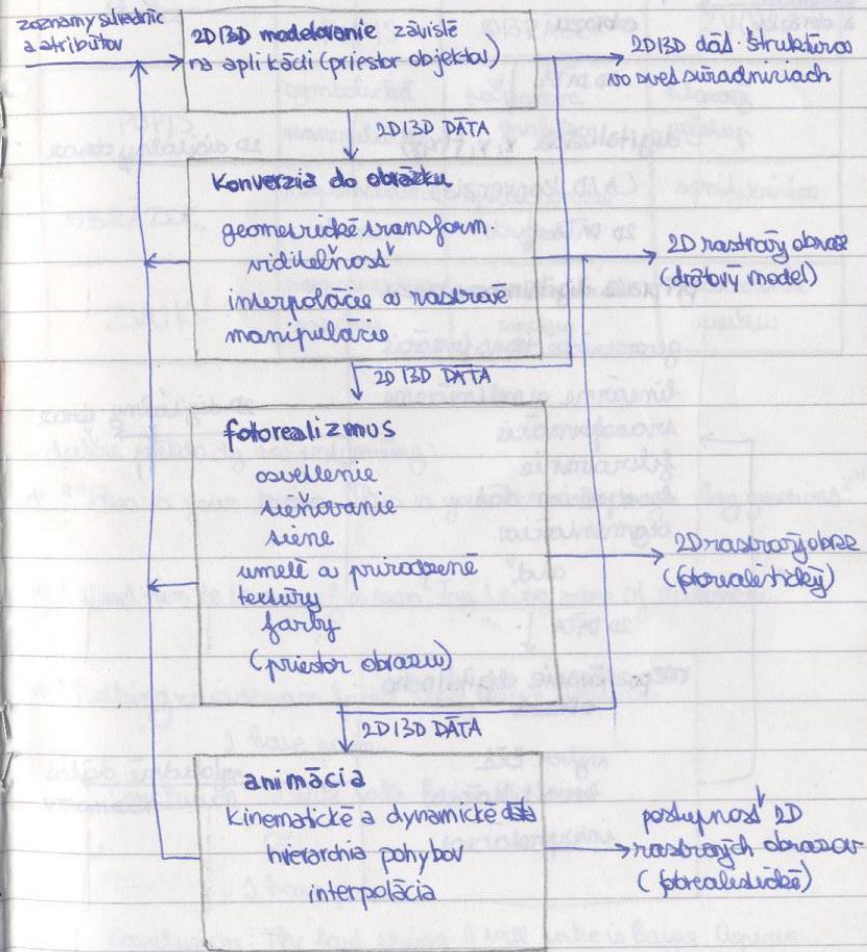 zoznamy súradníc
a atribútov
2D/3D modelovanie závislé
na aplikácii (priestor objektov)
2D/3D dát. štruktúra
vo svet. súradniciach
2D/3D DÁTA
Konverzia do obrázku
geometrické transform.
viditeľnosť
interpolácie a rastrové
manipulácie
2D rastrový obraz
(drôtový model)
2D/3D DÁTA
fotorealizmus
osvetlenie
tieňovanie
tiene
umelé a prirodzené
textúry
farby
(priestor obrazu)
2D rastrový obraz
(fotorealistický)
2D/3D DÁTA
animácia
kinematické a dynamické
hierarchia pohybov
interpolácia
postupnosť 2D
rastrových obrazov
(fotorealistické)